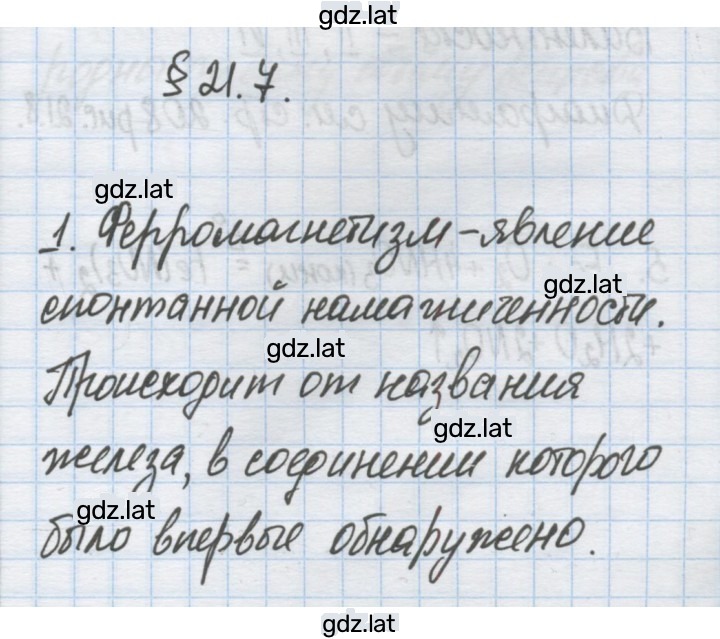 gdz.lat
§ 21.7.
gdz.lat
1. Ферромагнетизм - явление
gdz.lat
спонтанной намагниченности.
gdz.lat
Происходит от названия
gdz.lat
железа, в соединении которого
gdz.lat
было впервые обнаружено.
gdz.lat